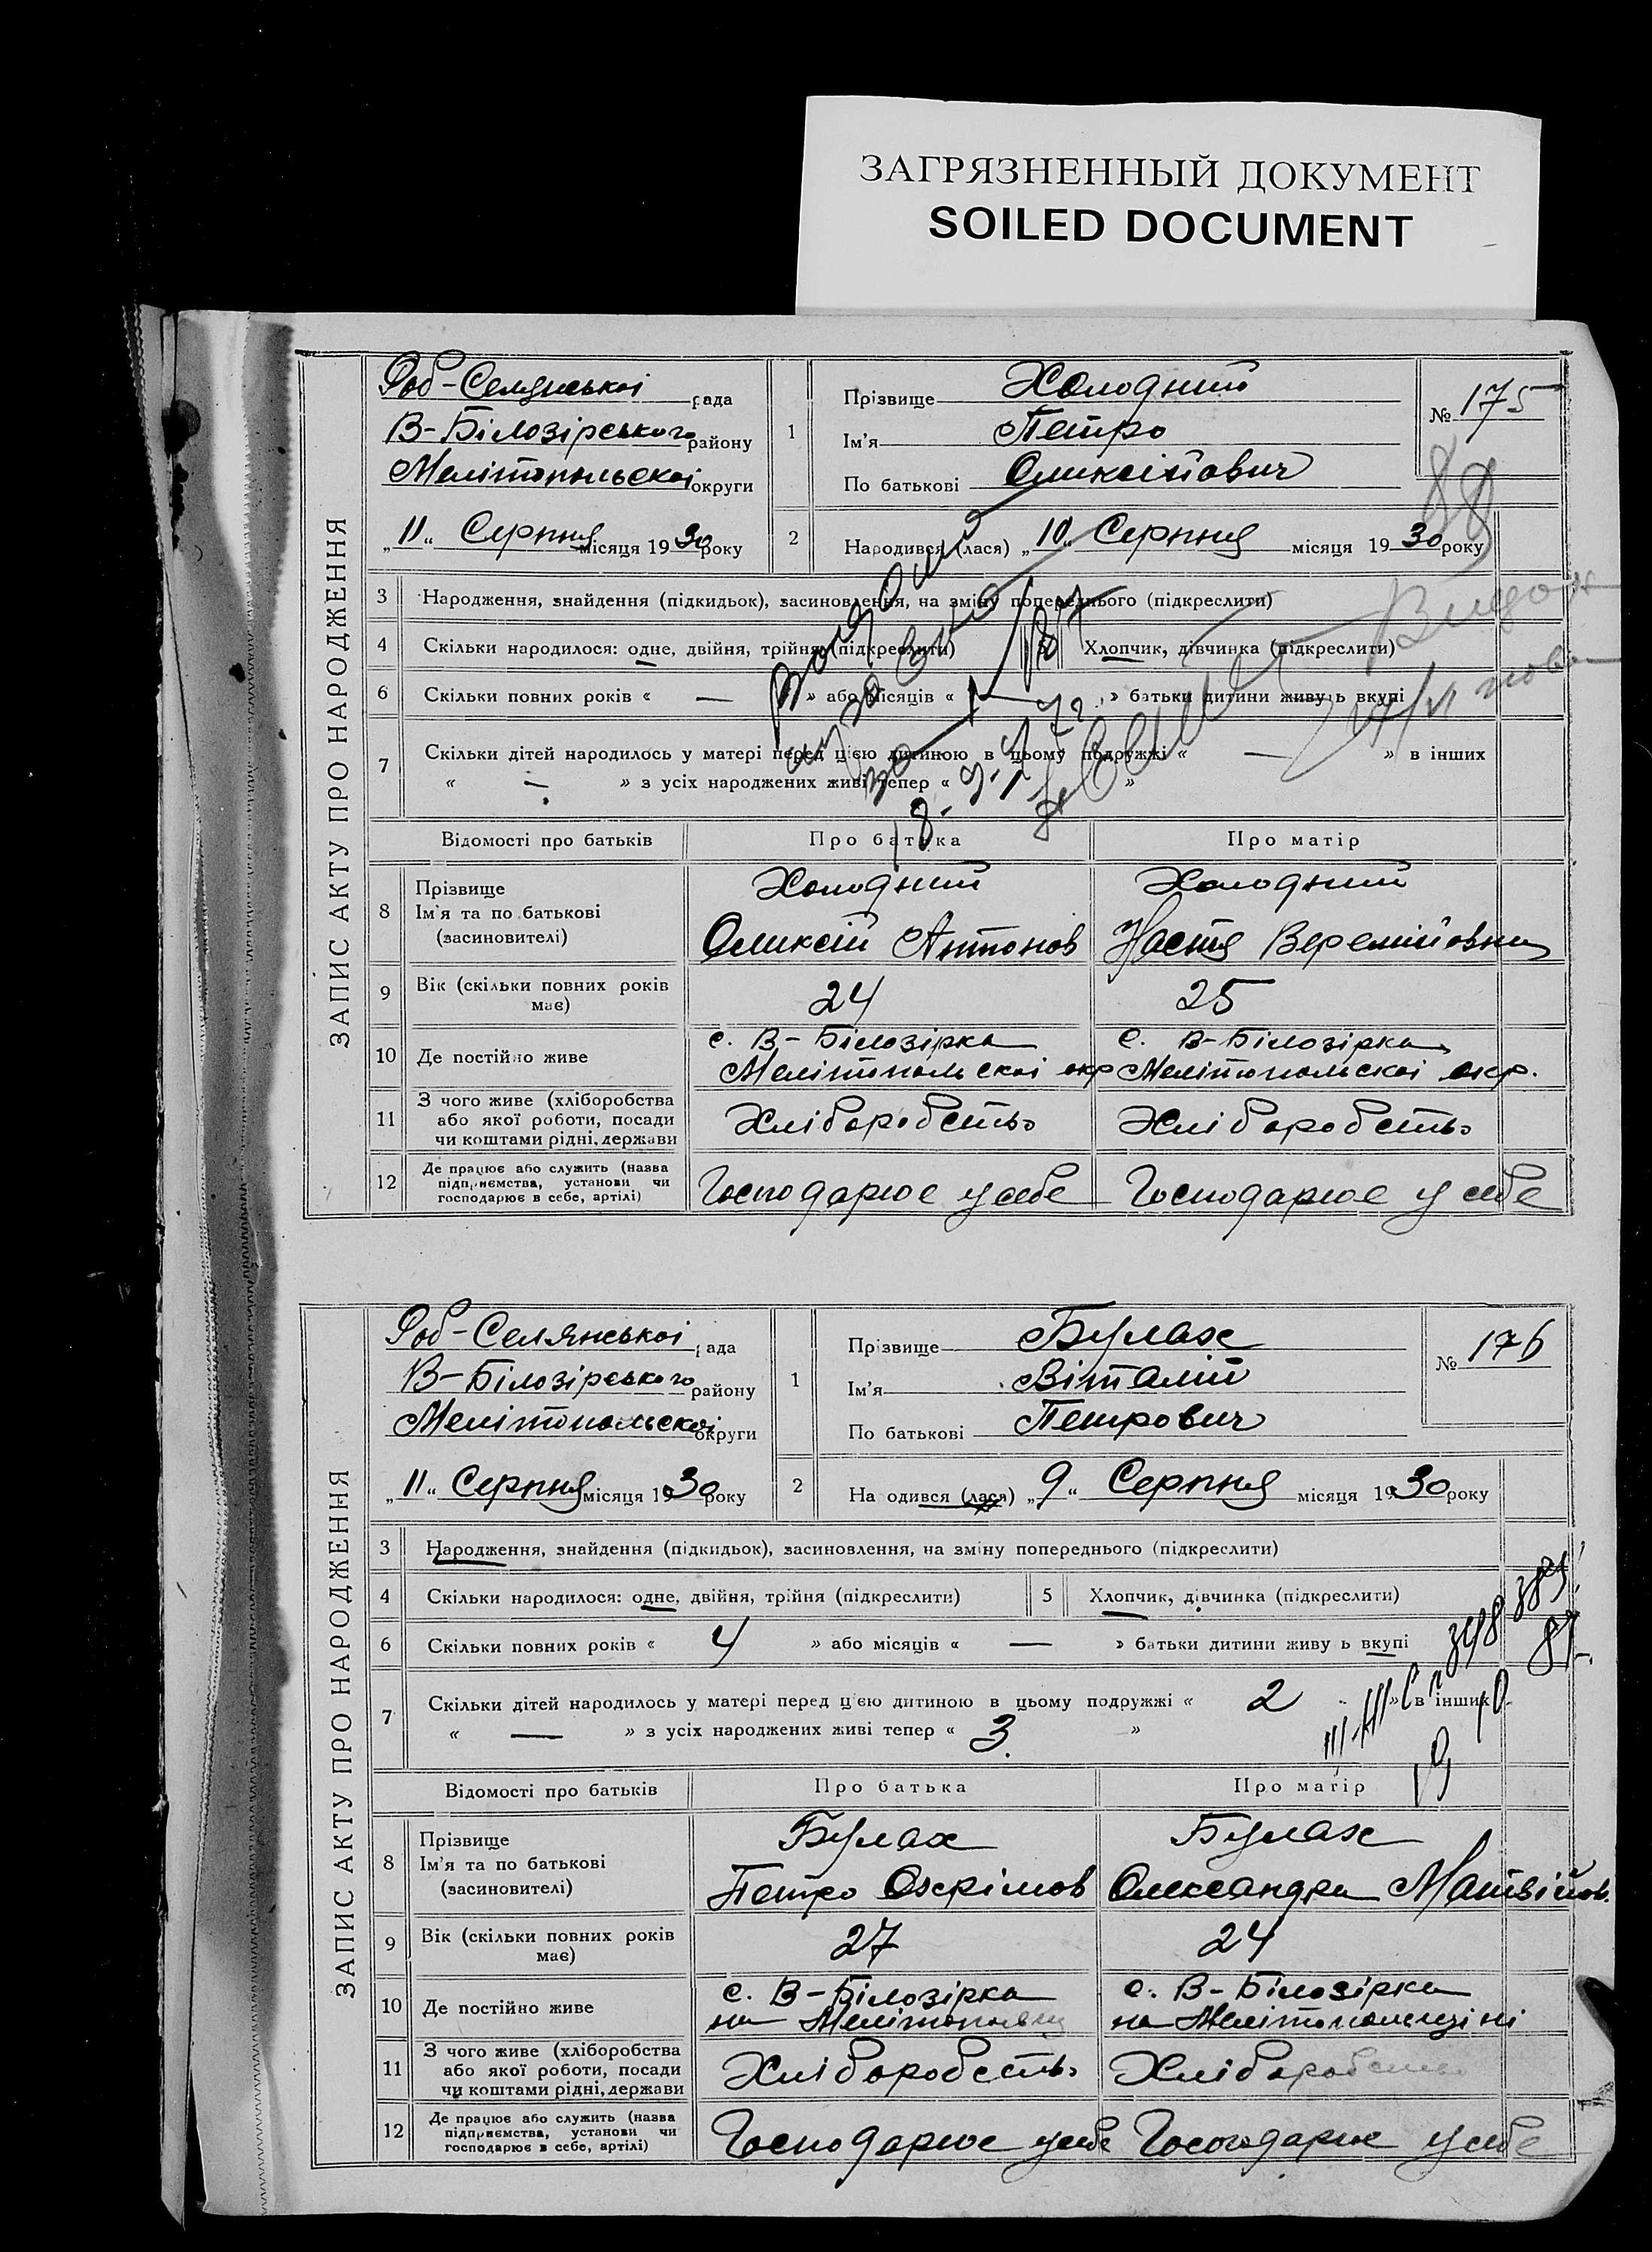 ЗАГРЯЗНЕННЫЙ ДОКУМЕНТ
SOILED DOCUMENT
ЗАПИС АКТУ ПРО НАРОДЖЕННЯ
Роб-Селянської рада
В-Білозірського району
Мелітопольскої округи
„11“ Серпня місяця 1930 року
1
Прізвище Холодний
Ім'я Петро
По батькові Оликсійович
№ 175
88
2
Народився (лася) „10“ Серпня місяця 1930 року
3 Народження, знайдення (підкидьок), засиновлення, на зміну попереднього (підкреслити)
4 Скільки народилося: одне, двійня, трійня (підкреслити) Хлопчик, дівчинка (підкреслити)
6 Скільки повних років « — » або місяців « — » батьки дитини живуь вкупі
7 Скільки дітей народилось у матері перед цією дитиною в цьому подружжі « — » в інших
« — » з усіх народжених живі тепер « »
Відомості про батьків Про батька Про матір
8 Прізвище Холодний Холодний
Ім'я та по батькові
(засновителі) Оликсій Антонов Настя Веремійовна
9 Вік (скільки повних років має) 24 25
10 Де постійно живе с. В-Білозірка с. В-Білозірка
Мелітопольскоі окр Мелітопольскоі окр.
11 З чого живе (хліборобства
або якої роботи, посади
чи коштами рідні, держави Хліборобстьо Хліборобстьо
12 Де працює або служить (назва
підприємства, установи чи
господарює в себе, артілі) Господарює у себе Господарює у себе
ЗАПИС АКТУ ПРО НАРОДЖЕННЯ
Роб-Селянської рада
В-Білозірського району
Мелітопольскої округи
„11“ Серпня місяця 1930 року
1
Прізвище Булах
Ім'я Віталій
По батькові Петрович
№ 176
2
На одився (лася) „9“ Серпня місяця 1930 року
3 Народження, знайдення (підкидьок), засиновлення, на зміну попереднього (підкреслити)
4 Скільки народилося: одне, двійня, трійня (підкреслити) 5 Хлопчик, дівчинка (підкреслити)
6 Скільки повних років « 4 » або місяців « — » батьки дитини живу ь вкупі
7 Скільки дітей народилось у матері перед цією дитиною в цьому подружжі « 2 » в інших
« — » з усіх народжених живі тепер « 3 »
Відомості про батьків Про батька Про матір
8 Прізвище Булах Булах
Ім'я та по батькові
(засиновителі) Петро Охрімов Олександра Матвійов.
9 Вік (скільки повних років має) 27 24
10 Де постійно живе с. В-Білозірка с. В-Білозірка
на на Мелітопольщіні
11 З чого живе (хліборобства
або якої роботи, посади
чи коштами рідні, держави Хліборобстьо Хліборобстьо
12 Де працює або служить (назва
підприємства, установи чи
господарює в себе, артілі) Господарює у себе Господарює у себе